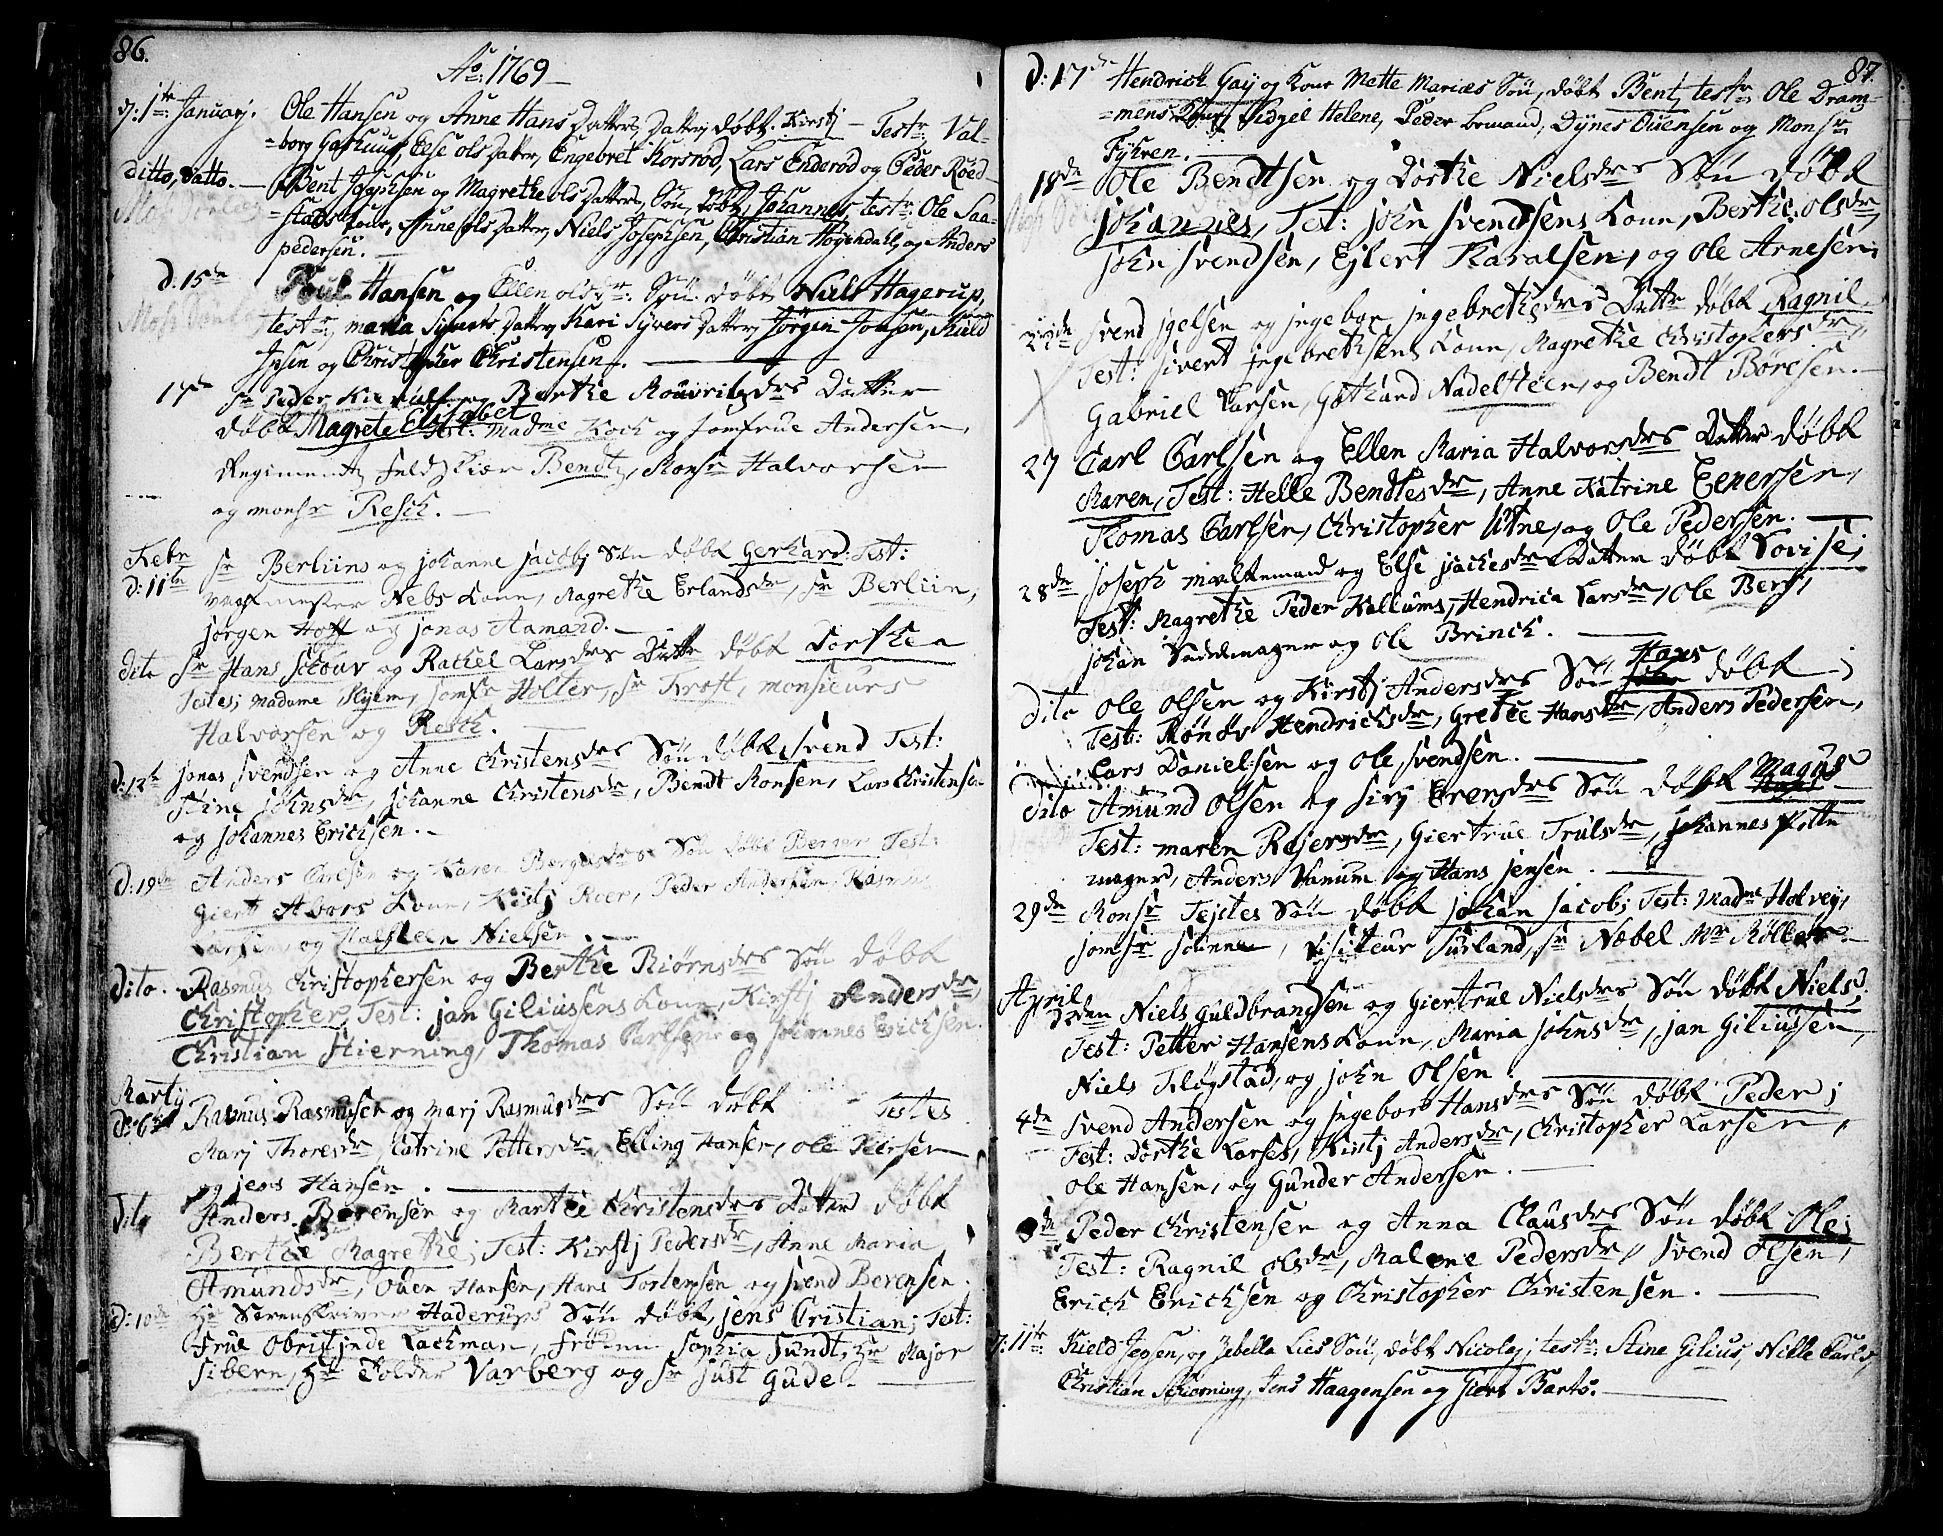 86.
Ao. 1769
d: 1te January. Ole Hansen og Anne Hans Datters Datter døbt Kirstj – Testr Val-
=borg Gashuus, Else ols Datter, Engebret Korsrød, Lars Enderød og Peder Røed
ditto, datto. – Bent Josephsen og Magrethe ols Datters Søn, døbt Johannes, testr: Ole Saa-
=stads kone, Anne ols Datter, Niels Josephsen, Christian Høyendahl, og Anders
pedersen. –
d: 15de Poul Hansen og Ellen olsdr: Søn døbt Niels Hagerup,
testr, maria Syvers Datter, Kari Syvers Datter, Jørgen Jonsen, Kield
Jpsen og Christopher Christensen. –
17de Sr Peder Kierulf og Berthe Mouritzdrs Datter
døbt Magrete Elisabet Test: Madme Koch og Jomfrue Andersen,
Regiments feldskiær Bendtz, Monsr Halvorsen
og monsr Resch. –
Febr
d: 11te Sr Berliins og johanne jacobs Søn døbt Gerhard: Test:
mester Nebs Kone, Magrethe Erlandsdr, Sr Berliin,
jørgen Hoff og jonas Aamand. –
dito Sr Hans Schouv og Rachel Larsdrs Dattr døbt Dorthea
Testes; Madame Hyem, jomfr Holter, Sr Kroft, monsieurs
Halvorsen og Resch.
d: 12te jonas Svendsen og Anne Christensdrs Søn døbt Svend Test:
Stine johnsdr, johanne Christensdr, Bendt Monsen, Lars Christensen
og johannes Erichsen. –
d: 19de Anders Carlsen og Karen Søn døbt Test:
Giert Kone, Kistj Roer, Peder Andersen, Rasmus
Larsen, og Halsteen Nielsen
dito. Rasmus Christophersen og Berthe Biørnsdrs Søn døbt
Christopher, Test: jan Giliusens Kone, Kirstj Andersdr,
Christian Hierning, Thomas Carlsen og johannes Erichsen.
Martij
d: 6te Rasmus Rasmusen og marj Rasmusdrs Søn døbt Testes
Marj Thoresdr, Catrine Pettersdr, Elling Hansen, Ole Peersen
og jens Hansen. –
Dito Anders Børensen og Marthe Christensdrs Datter døbt
Berthe Magrethe; Test: Kirstj Pedersdr, Anne Maria
Amundsdr, Ouen Hansen, Hans Torstensen og Svend Berensen.
d: 10de Hr Sorenskriver Haderups Søn døbt, jens Cristian; Test:
Frue Obristjnde Lachman, Frøken Sophia Sundt, Hr Major
Sibern, Hr Holder Varberg og Sr just Gude. –
87.
d: 17de Hendrich Gay og kone Mette Maries Søn, døbt Bent, testr: Ole Dram-
=mens Kone, Sidzel Helene, Peder Lomand, Dynes Ouensen og Monsr
Fyhren.
18de Ole Bendtsen og Dorthe Nielsdrs Søn døbt
johannes, Test: john Svendsens Kone, Berthe olsdr,
john Svendsen, Ejlert Haralsen, og Ole Arnesen;
Svend jgelsen og jngebor jngebrethsdrs Dattr døbt Ragnil
Test: Sivert jngebrethsens Kone, Magrethe Christophersdr,
Gabriel Larsen, Gothard Nadelsteen, og Bendt Børesen. –
27 Carl Carlsen og Ellen Maria Halvorsdrs Datter døbt
Maren, Test: Helle Bendtesdr, Anne Katrine Eenersen,
Thomas Carlsen, Christopher Utne, og Ole Pedersen. –
28de joseph og Else jachesdrs Datter døbt Lovise;
Test: Magrethe Peder Kallums, Hendrica Larsdr, Ole Berg,
johan Sadelmager og Ole Brinch. –
Dito Ole Olsen og Kirstj Andersdrs Søn Hans døbt;
Test: Rønøv Hendrichsdr, Grethe Hansdr, Anders Pedersen,
Lars Danielsen og Ole Svendsen. –
Dito Amund Olsen og Sirj Erensdrs Søn døbt Magus
Test: maren Rejersdr, Giertrue Trulsdr, johannes Potte
mager, Anders Vanum og Hans jensen. –
29de Monsr Tejstes Søn døbt johan jacob; Test: Madme Holvey,
jomfr Schinne, Visiteur Surland, Sr Nœbel Mr Røller. –
April
2den Niels Guldbrandsen og Giertrue Nielsdrs Søn døbt Niels
Test: Petter Hansens Kone, Maria johnsdr, jan Giliusen,
Niels Kløgstad, og john Olsen. –
4de Svend Andersen og jngebor Hansdrs Søn døbt Peder;
Test: Dorthe Larses, Kirstj Andersdr, Christopher Larsen,
Ole Hansen, og Gunder Andersen. –
de Peder Christensen og Anna Clausdrs Søn døbt Ole;
Test: Ragnil olsdr, Malene Pedersdr, Svend Olsen,
Erich Erichsen og Christopher Christensen. –
d: 11te: Kield Jepsen, og Zebella Lies Søn, døbt Nicolaj; testr: Stine Gilius, Nille Carls,
Christian Schiørning, Jens Haagensen og Giert Barto. –